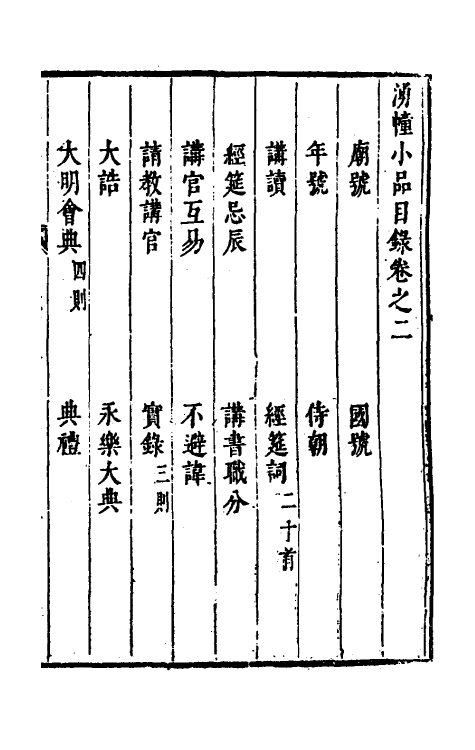 湧幢小品目錄卷之二
廟號　國號
年號　侍朝
講讀　經筵詞二十首
經筵忌辰　講書職分
講官互易　不避諱
請教講官　實錄三則
大誥　永樂大典
大明會典四則　典禮